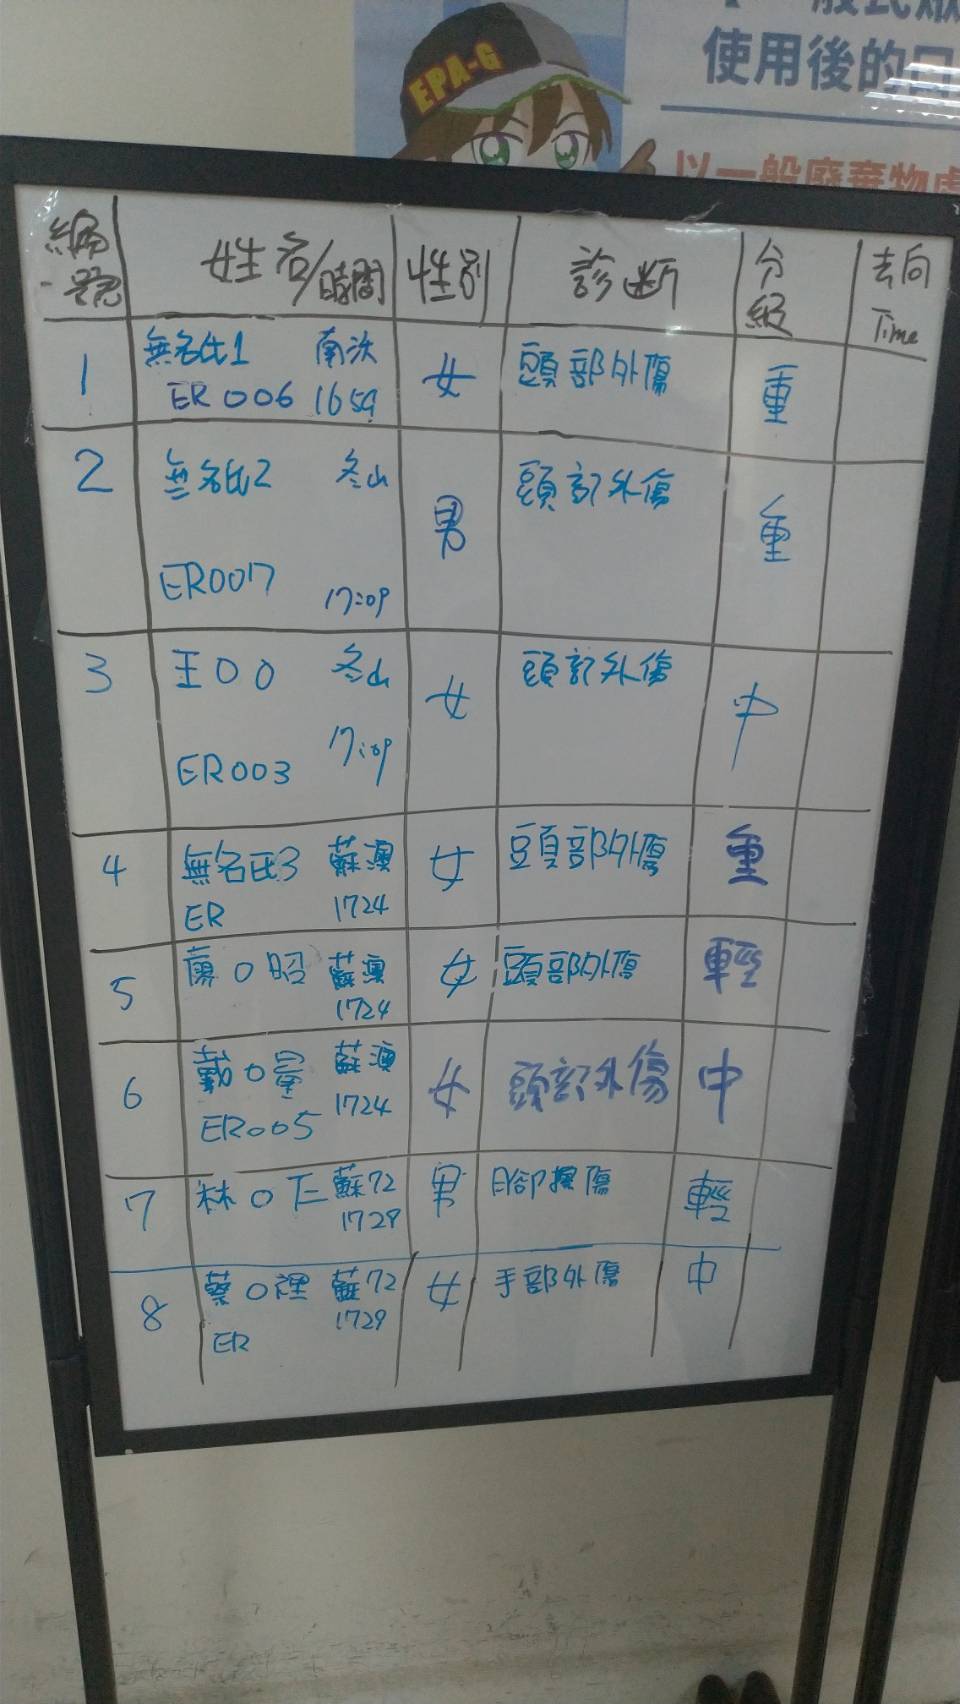 EPA-G
使用後的
以一般廢棄物處
編號 姓名/時間 性別 診斷 分級 去向 Time
1 無名氏1 南汰 女 頭部外傷 重
ER006 1659
2 無名氏2 冬山 男 頭部外傷 重
ER007 17:09
3 王OO 冬山 女 頭部外傷 中
ER003 17:09
4 無名氏3 蘇澳 女 頭部外傷 重
ER 1724
5 O昭 蘇澳 女 頭部外傷 輕
1724
6 戴O量 蘇澳 女 頭部外傷 中
ER005 1724
7 林O仁 蘇72 男 腳擦傷 輕
1729
8 蔡O裡 蘇72 女 手部外傷 中
ER 1729